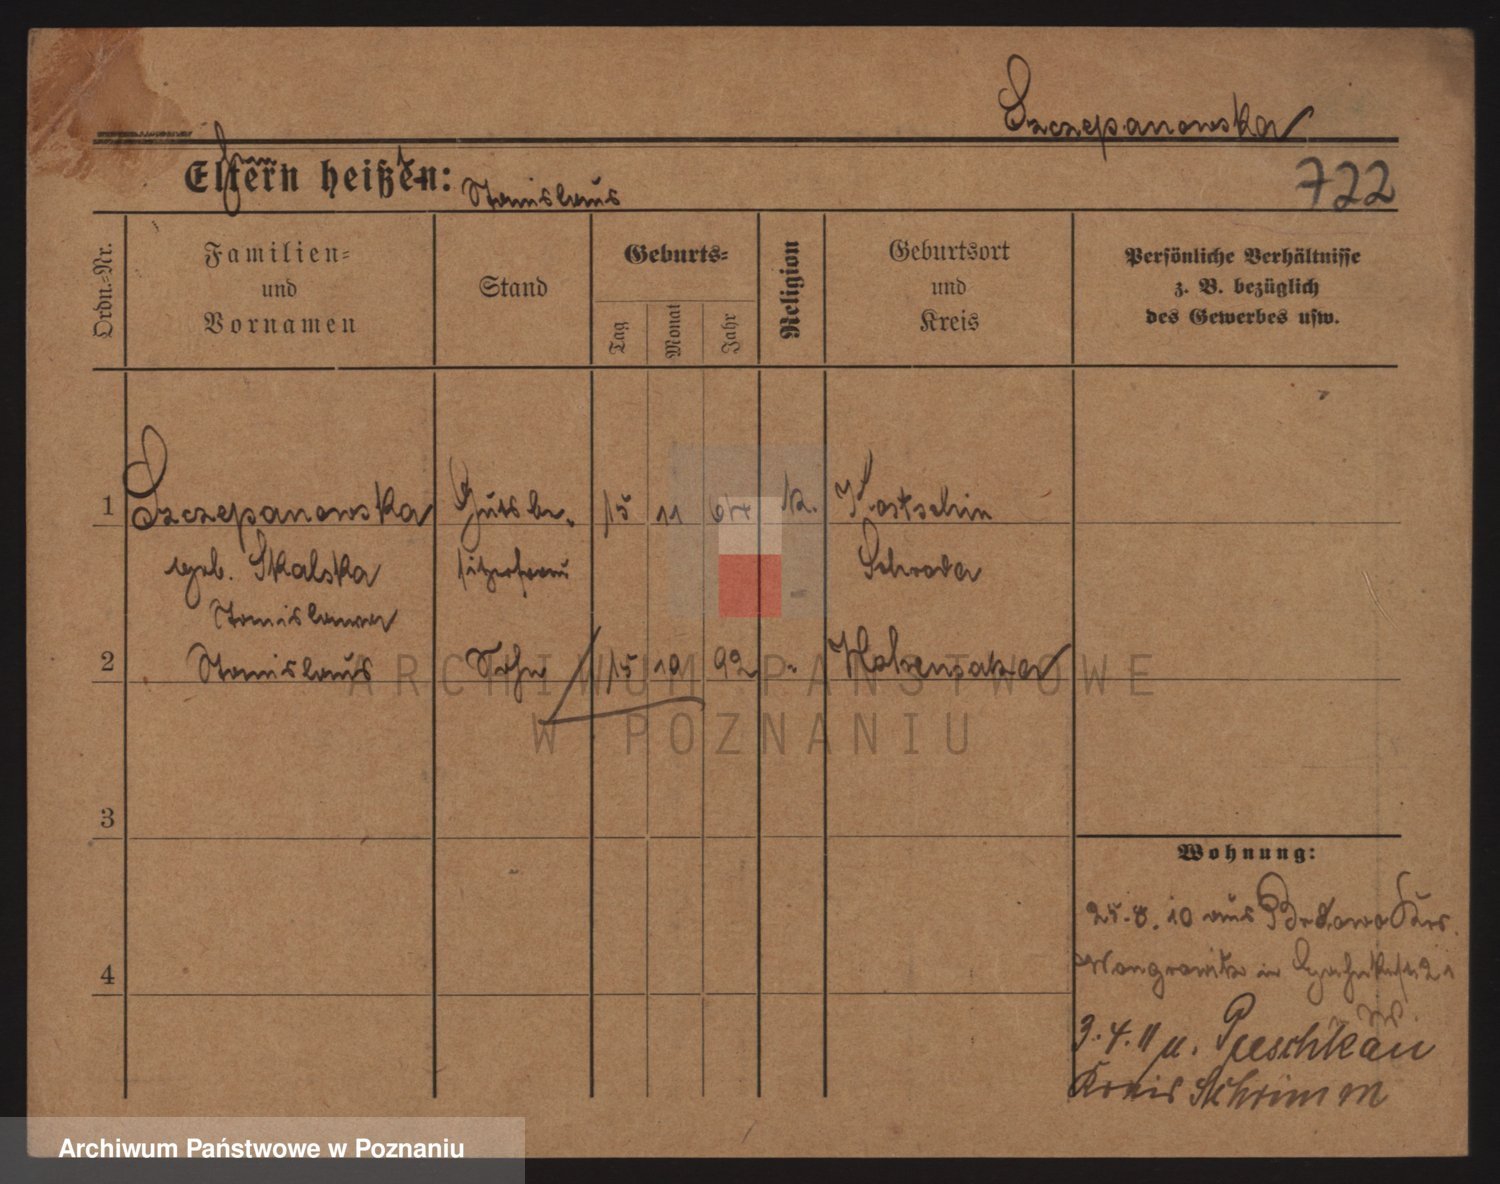 Szczepanowska
Eltern heißen: Stanislaus
722
Ordn.=Nr.
Familien=
und
Vornamen
Stand
Geburts=
Tag
Monat
Jahr
Religion
Geburtsort
und
Kreis
Persönliche Verhältnisse
z. B. bezüglich
des Gewerbes usw.
1 Szczepanowska Gutsbe- 15 11 67 k. Kostschin
geb. Skalska sitzerfrau Schroda
Stanislawa
2 Stanislaus Sohn 15 10 92 " 
3
4
Wohnung:
25.8.10 aus
Wongrowitz in 21
3.4.11 n. Puschkau
Kreis Schrimm
ARCHIWUM PAŃSTWOWE
W POZNANIU
Archiwum Państwowe w Poznaniu